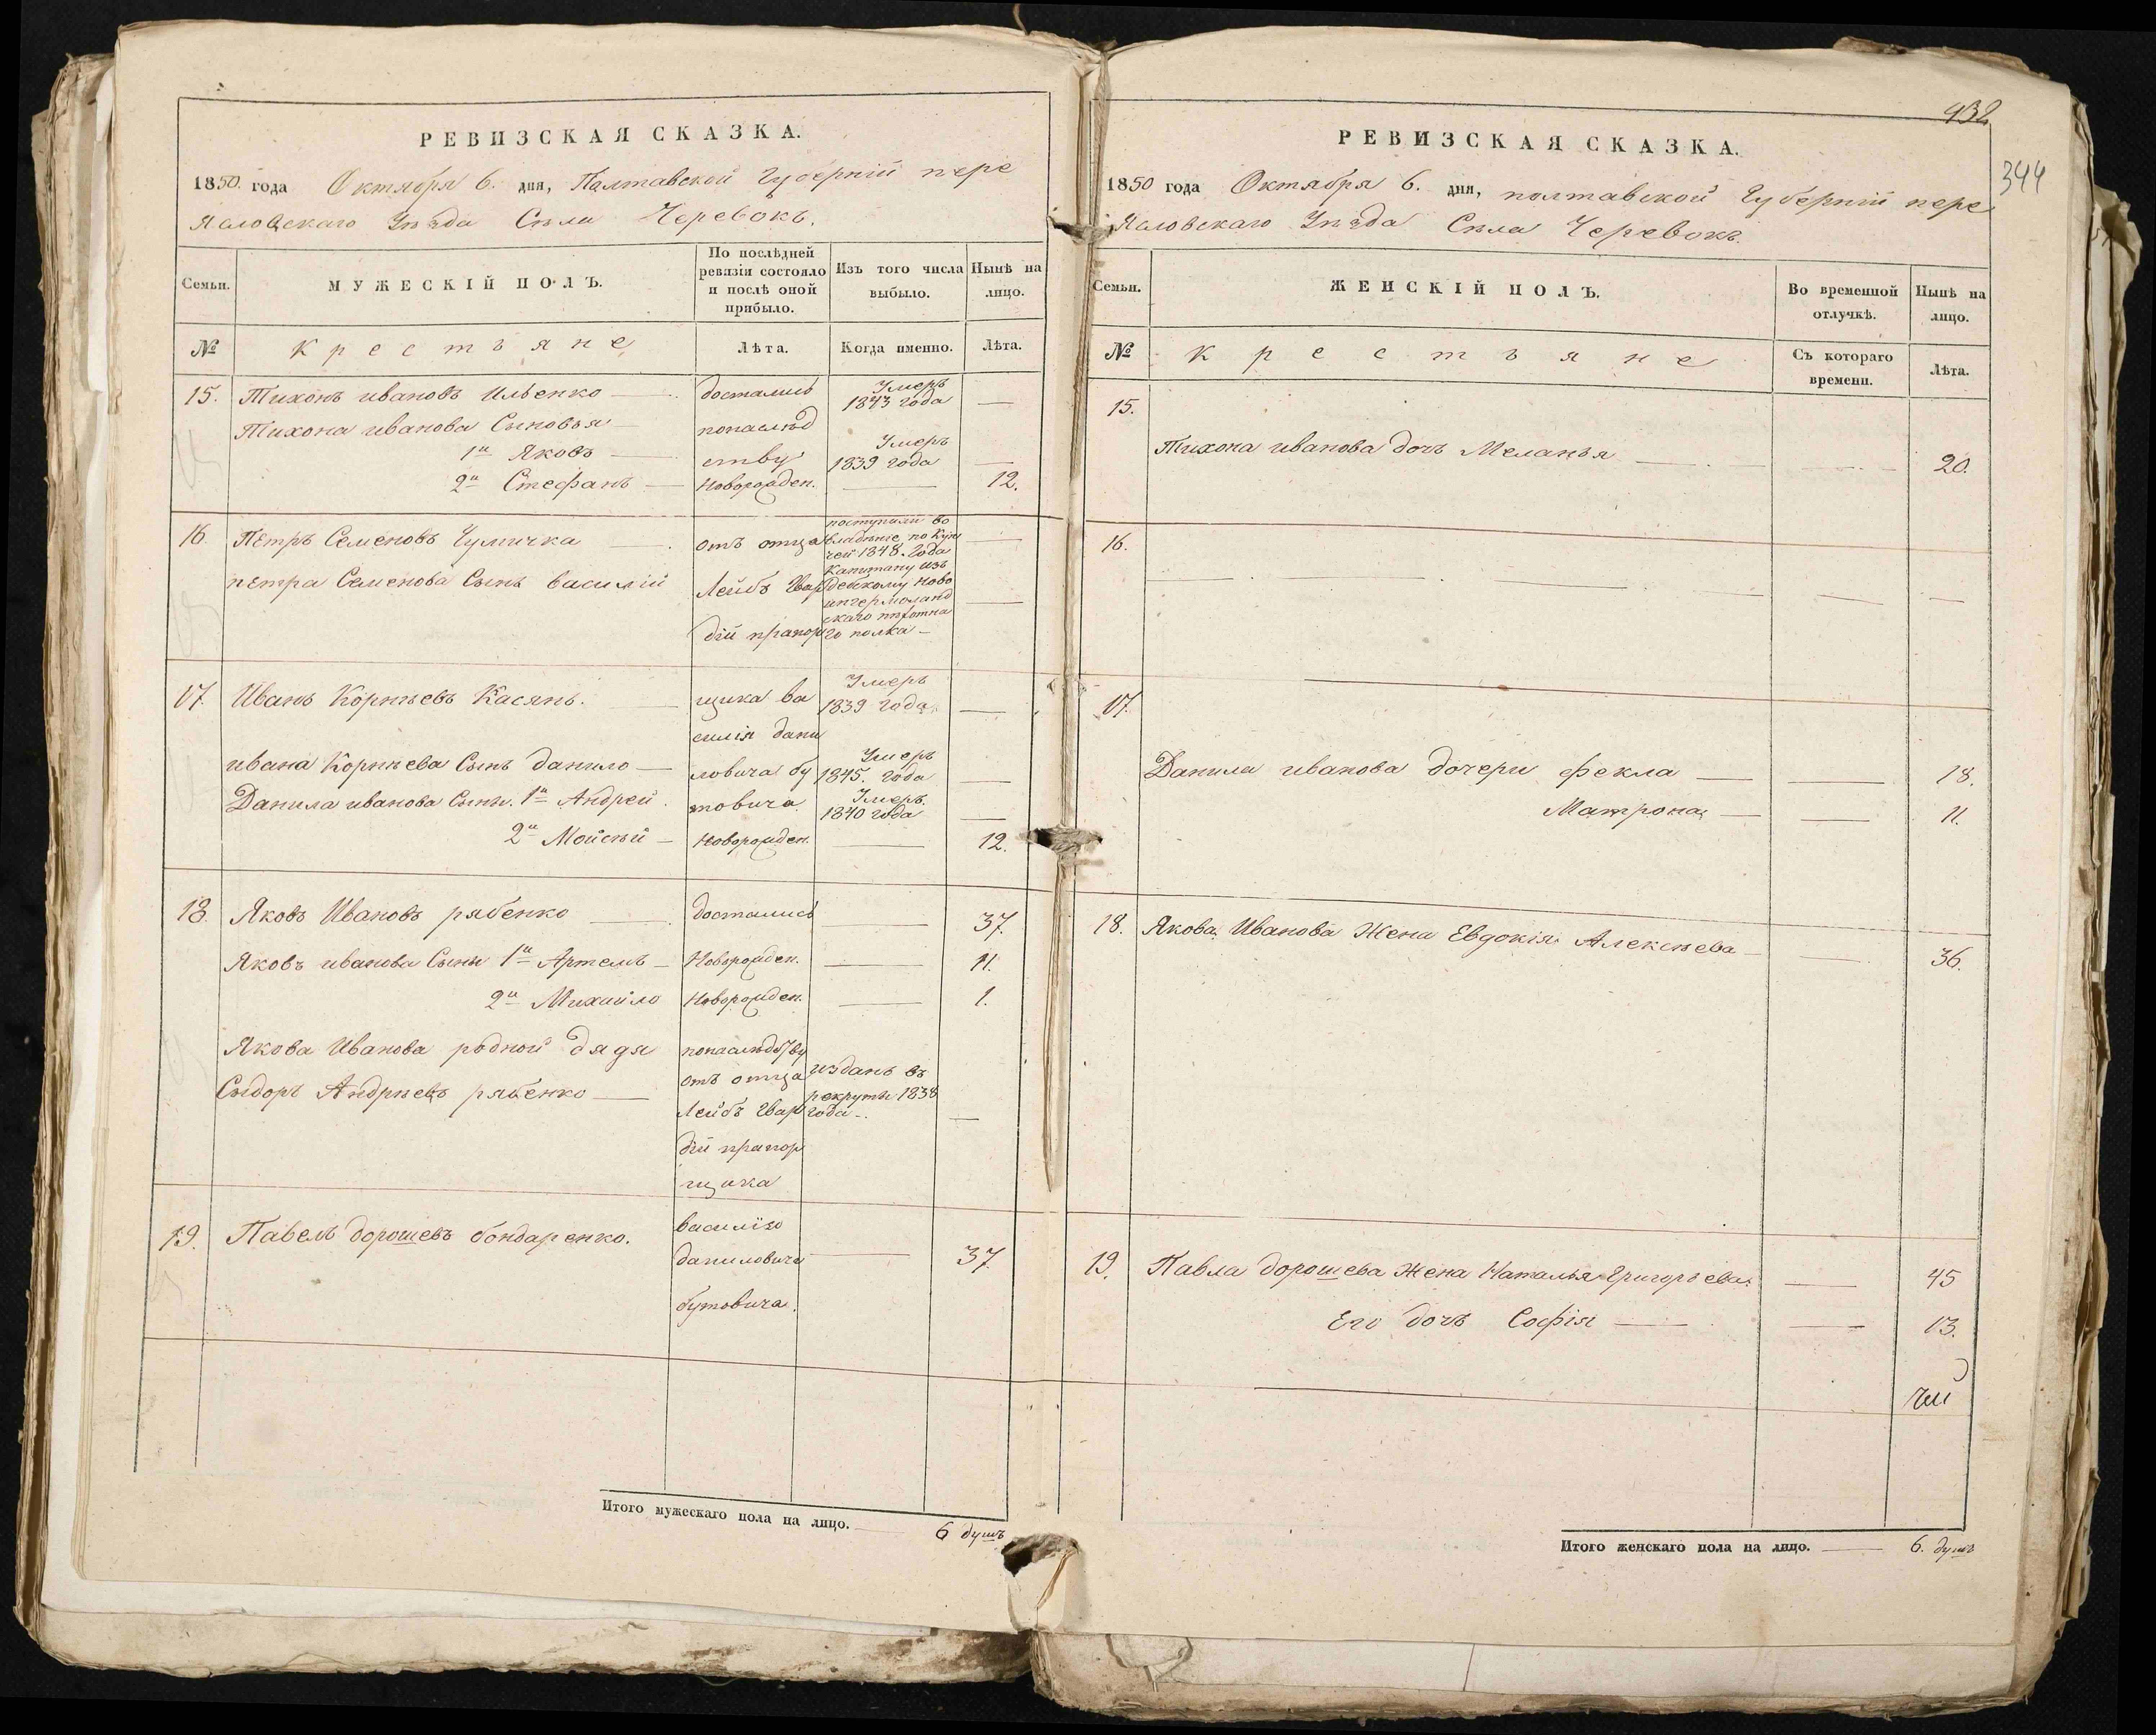 РЕВИЗСКАЯ СКАЗКА.
1850. года Октября 6. дня, Палтавской Губерній пере
яславскаго Уѣзда Сѣла Черевокъ.
Семьи.
МУЖЕСКІЙ ПОЛЪ.
По послѣдней ревизіи состояло и послѣ оной прибыло.
Изъ того числа выбыло.
Нынѣ на лицо.
№ Крестьяне Лѣта. Когда именно. Лѣта.
15. Тихонъ ивановъ Ильенко — досталися Умеръ 1843 года —
Тихона иванова Сыновья — понаслѣд
1й Яковъ — ству Умеръ 1839 года —
2й Стефанъ — Новорожден. — 12.
16. Пѣтръ Семеновъ — отъ отца
поступили во
владѣніе по Куп
чей 1848. года
Капитану изъ
пѣтра Семенова Сынъ василій Лейбъ Гвар
ново
ингермоланд
скаго пѣхотна
дій прапор го полка —
17. Иванъ Корнѣевъ Касянъ. — щика ва Умеръ 1839 года. —
силія дани
ивана Корнѣева Сынъ данило — ловича бу Умеръ 1845. года —
Данила иванова Сыны. 1й Андрей. товича Умеръ. 1840 года —
2й Мойсѣй — Новорожден. — 12.
18. Яковъ Ивановъ рябенко — досталися — 37.
Яковъ иванова Сыны 1й Артемъ — Новорожден. — 11.
2й Михайло Новорожден. — 1.
Якова Иванова родной дядя понаслѣдству
Сыдоръ Андрѣевъ рябенко — отъ отца изданъ въ
Лейбъ Гвар рекруты 1838 года —. —
дій прапор
щика
19. Павелъ дорошевъ бондаренко. василію
даниловича — 37
бутовича.
Итого мужескаго пола на лицо. — 6 душъ
932
344
РЕВИЗСКАЯ СКАЗКА.
1850 года Октября 6. дня, полтавской Губерній пере
Яславскаго Уѣзда Сѣла Черевокъ.
Семьи.
ЖЕНСКІЙ ПОЛЪ.
Во временной отлучкѣ.
Нынѣ на лицо.
№ Крестьяне Съ котораго времени. Лѣта.
15.
Тихона иванова дочъ Меланья — — 20.
16.
17.
Данила иванова дочери фекла — — 18.
Матрона — — 11.
18. Якова Иванова Жена Евдокія Алексѣева — — 36.
19. Павла дорошева Жена Наталья Григорьева. — 45
Его дочъ Софія — — 13.
Итого женскаго пола на лицо. — 6. душъ